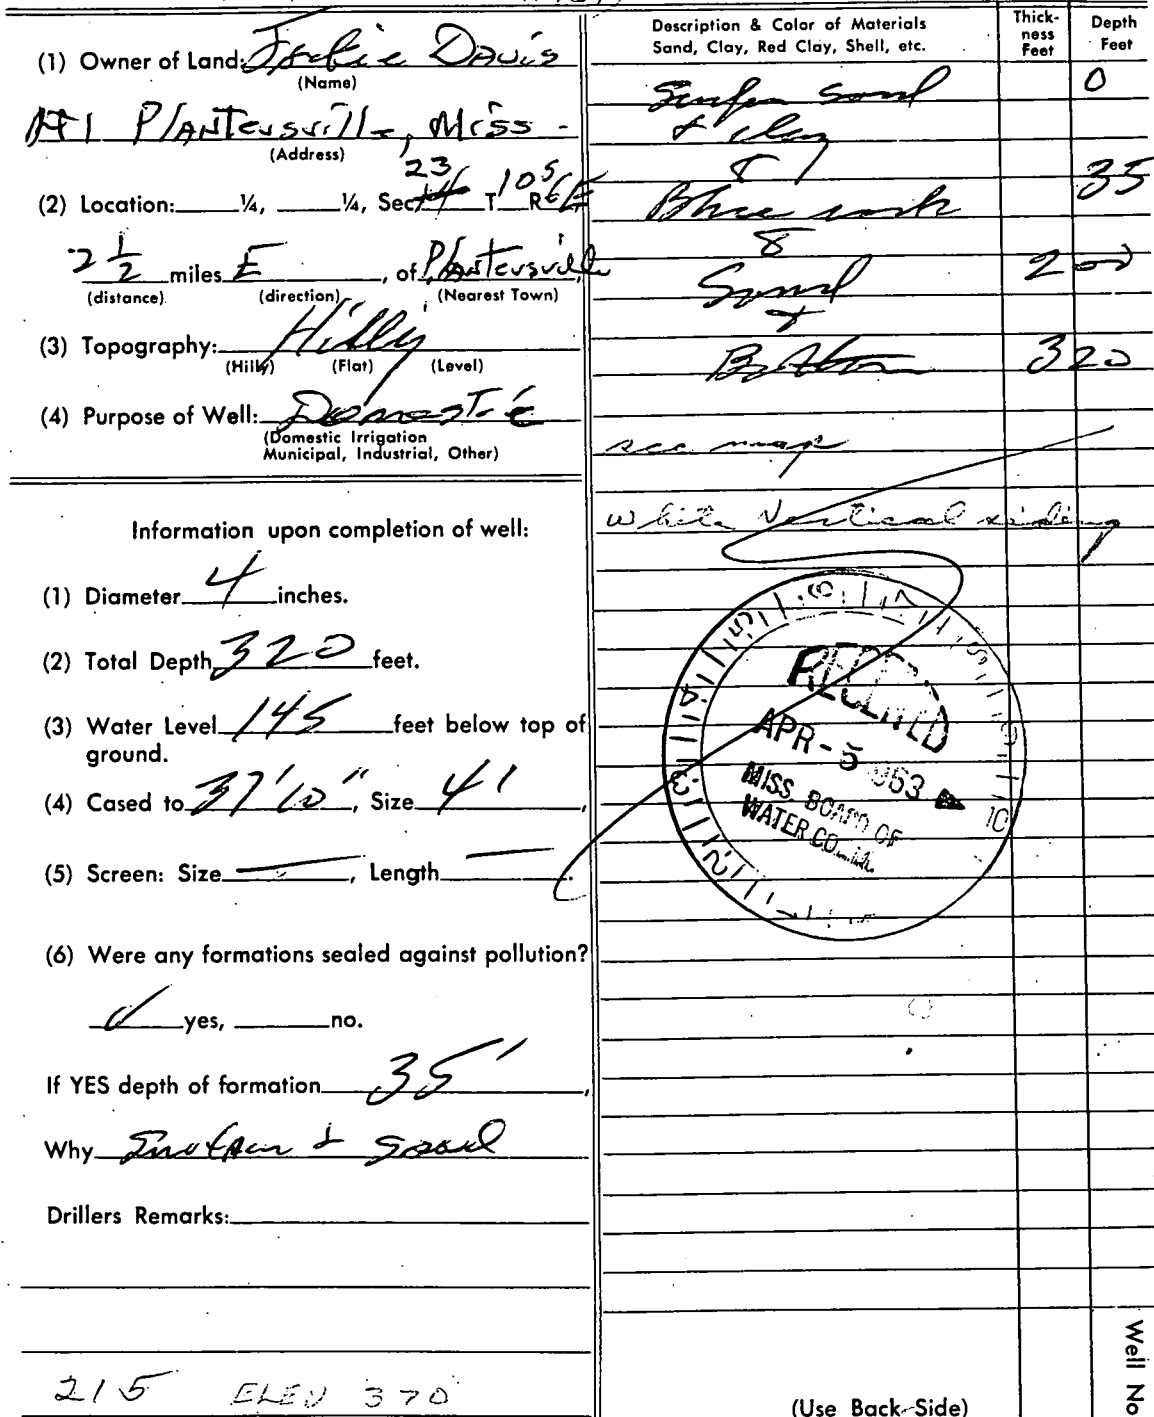 (1) Owner of Land: Jackie Davis
(Name)
Rt 1 Plantersville, Miss -
(Address)
(2) Location: ¼, ¼, Sec 23 T 10 S R 6 E
2 ½ miles E, of Plantersville
(distance) (direction) (Nearest Town)
(3) Topography: Hilly
(Hilly) (Flat) (Level)
(4) Purpose of Well: Domestic
(Domestic Irrigation
Municipal, Industrial, Other)
Information upon completion of well:
(1) Diameter 4 inches.
(2) Total Depth 320 feet.
(3) Water Level 145 feet below top of
ground.
(4) Cased to 37'10", Size 4',
(5) Screen: Size —, Length —.
(6) Were any formations sealed against pollution?
yes, no.
If YES depth of formation 35',
Why & sand
Drillers Remarks:
215 ELEV 370
Description & Color of Materials
Sand, Clay, Red Clay, Shell, etc.
Thick-
ness
Feet
Depth
Feet
sand 0
& clay
Blue rock 35
Sand 200
Bottom 320
see map
white Vertical siding
RECEIVED
APR - 5 1963
MISS. BOARD OF
WATER COM.
(Use Back Side)
Well No